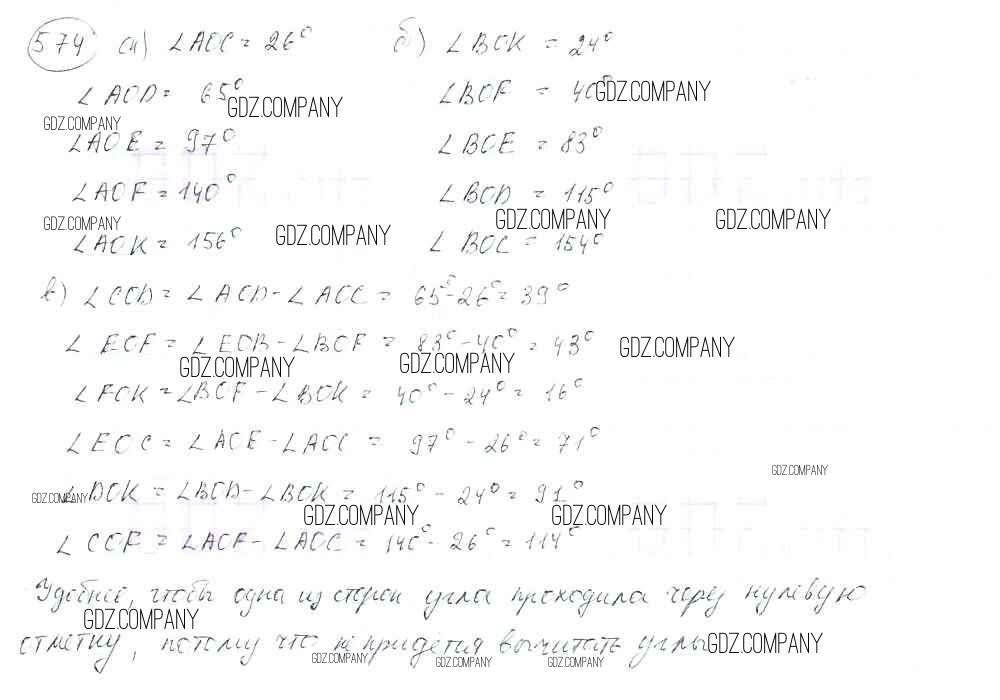 574 а) ∠AOC = 26° б) ∠BOK = 24°
∠AOD = 65° GDZ.COMPANY ∠BOF = 40° GDZ.COMPANY
GDZ.COMPANY
∠AOE = 97° ∠BOE = 83°
∠AOF = 140° ∠BOD = 115°
GDZ.COMPANY GDZ.COMPANY GDZ.COMPANY
∠AOK = 156° GDZ.COMPANY ∠BOC = 154°
в) ∠COD = ∠AOD - ∠AOC = 65° - 26° = 39°
∠EOF = ∠EOB - ∠BOF = 83° - 40° = 43° GDZ.COMPANY
GDZ.COMPANY GDZ.COMPANY
∠FOK = ∠BOF - ∠BOK = 40° - 24° = 16°
∠EOC = ∠AOE - ∠AOC = 97° - 26° = 71°
GDZ.COMPANY
GDZ.COMPANY ∠DOK = ∠BOD - ∠BOK = 115° - 24° = 91°
GDZ.COMPANY GDZ.COMPANY
∠COF = ∠AOF - ∠AOC = 140° - 26° = 114°
Удобнее, чтобы одна из сторон угла проходила через нулевую
GDZ.COMPANY
отметку, потому что не придётся вычитать углы GDZ.COMPANY
GDZ.COMPANY GDZ.COMPANY GDZ.COMPANY